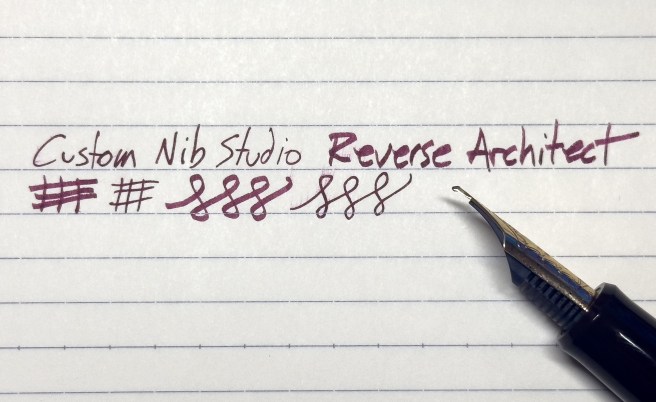 Custom Nib Studio Reverse Architect